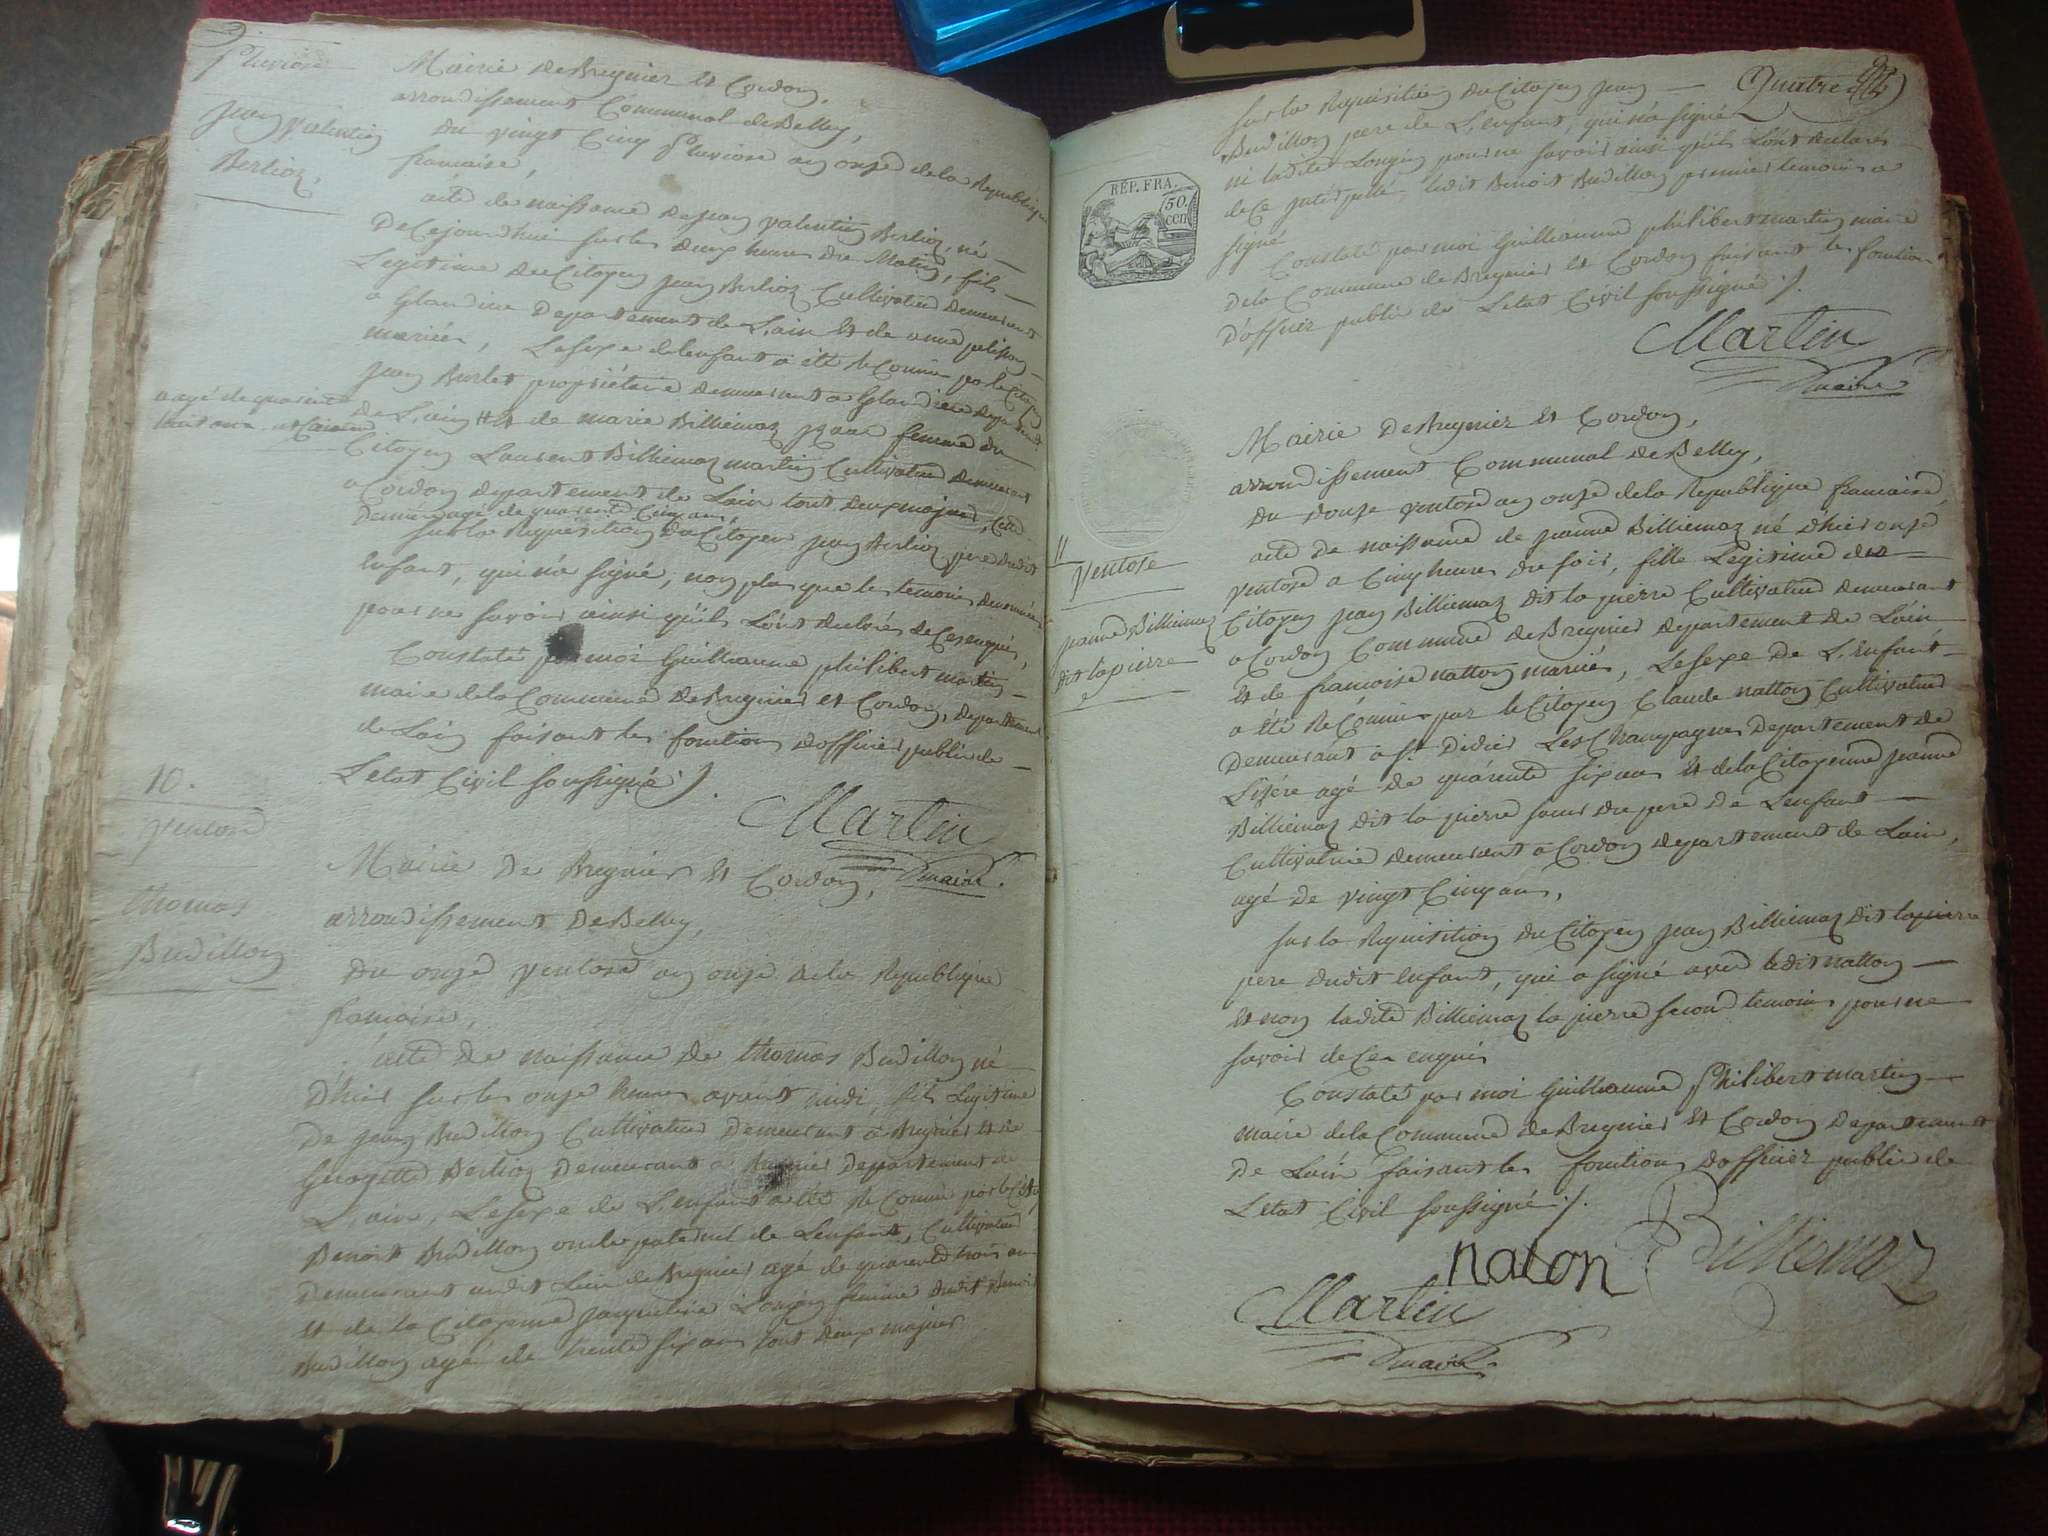 9.
Pluviose
jean valentin
Berlioz,
Mairie de Bregnier et Cordon,
arrondissement Communal de Belley,
du vingt Cinq Pluviose an onze de la Republique
francaise,
acte de naissance de jean valentin Berlioz, né
De Cejourdhui sur les deux heures du Matin, fils
Legitime du Citoyen jean Berlioz Cultivateur demeurant
a Glandieu Departement de L'ain et de anne pelisson
mariés, Le sexe de lenfant a été reConnu par le Citoyen
jean Burlet propriétaire demeurant a Glandieu departement
agé de quarante
huit ans
de L'ain # et de marie Billiemaz femme du
Citoyen Laurent Billiemaz martin Cultivateur demeurant
a Cordon departement de Lain tout deux majeurs, Cette
derniere agé de quarente Cinq ans,
sur la requisition du Citoyen jean Berlioz pere dudit
enfant, qui n'a signé, non plus que les temoins denommés
pour ne savoir ainsi qu'ils L'ont declarés de Ce enquis,
Constaté par moi Guilliaume philibert martin
maire de la Commune de Bregnier et Cordon, departement
de Lain faisant les fonctions dofficier public de
L'etat Civil soussigné ./.
Martin
maire
10.
ventose
thomas
Budillon
Mairie De Bregnier et Cordon,
arrondissement De Belley,
du onze ventose an onze de la Republique
francaise,
acte de naissance de thomas Budillon né
D'hier sur les onze heures avant midi, fils Legitime
De jean Budillon Cultivateur Demeurant a Bregnier et de
Georgette Berlioz demeurant a Bregnier Departement de
L'ain, Le sexe de L'enfant a été reConnu par le Citoyen
Benoit Budillon oncle paternel de Lenfant, Cultivateur
Demeurant audit Lieu de Bregnier agé de quarente trois ans
et de la Citoyenne Longin femme dudit Benoit
Budillon agé de trente six ans tout deux majeurs
Quatre
sur la Requisition du Citoyen jean
Budillon pere de L'enfant, qui n'a signé
ni ladite Longin pour ne savoir ainsi qu'ils L'ont declarés
de Ce interpellé, ledit Benoit Budillon premier temoin a
signé
REP. FRA.
50.
cen
Constaté par moi Guilliaume philibert martin maire
de la Commune de Bregnier et Cordon faisant les fonction
D'officier public de L'etat Civil soussigné ./.
Martin
maire
11
ventose
jeanne Billiemaz
dit lapierre
Mairie De Bregnier et Cordon,
arrondissement Communal de Belley,
du douze ventose an onze de la Republique francaise,
acte de naissance de jeanne Billiemaz né d'hier onze
ventose a Cinq heures du soir, fille Legitime du
Citoyen jean Billiemaz dit la pierre Cultivateur demeurant
a Cordon Commune de Bregnier departement de Lain
et de francoise natton mariés, Le sexe de L'enfant
a été reConnu par le Citoyen Claude natton Cultivateur
Demeurant a St. Didier Les Champagnes Departement de
L'isére agé de quarente six ans et de la Citoyenne jeanne
Billiemaz dit la pierre soeur du pere de Lenfant
Cultivatrice demeurant a Cordon departement de Lain,
agé de vingt Cinq ans,
sur la requisition du Citoyen jean Billiemaz dit lapierre
pere dudit enfant, qui a signé avec ledit natton
et non ladite Billiemaz la pierre second temoin pour ne
savoir de Ce enquis
Constaté par moi Guilliaume Philibert martin
maire de la Commune de Bregnier et Cordon Departement
De Lain faisant les fonctions dofficier public de
L'etat Civil soussigné ./.
naton Billiemaz
Martin
maire